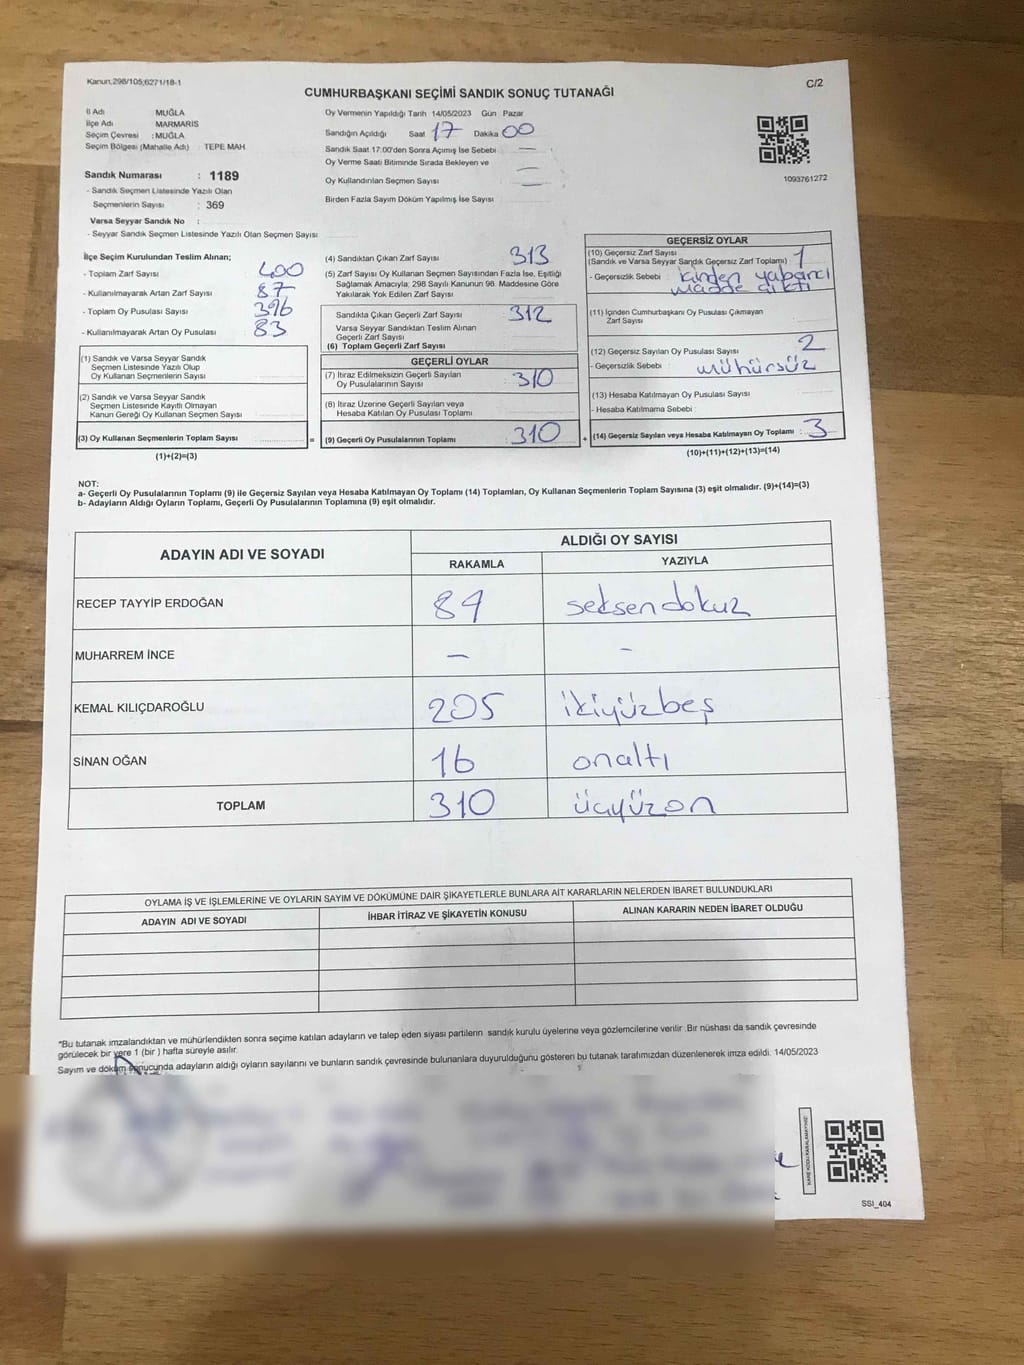 Kanun,298/105;6271/18-1
C/2
CUMHURBAŞKANI SEÇİMİ SANDIK SONUÇ TUTANAĞI
İl Adı MUĞLA
İlçe Adı MARMARİS
Seçim Çevresi : MUĞLA
Seçim Bölgesi (Mahalle Adı) : TEPE MAH.
Sandık Numarası : 1189
- Sandık Seçmen Listesinde Yazılı Olan
Seçmenlerin Sayısı : 369
Varsa Seyyar Sandık No :
- Seyyar Sandık Seçmen Listesinde Yazılı Olan Seçmen Sayısı
Oy Vermenin Yapıldığı Tarih 14/05/2023 Gün Pazar
Sandığın Açıldığı Saat 17 Dakika 00
Sandık Saat 17:00'den Sonra Açımış İse Sebebi —
Oy Verme Saati Bitiminde Sırada Bekleyen ve
Oy Kullandırılan Seçmen Sayısı —
Birden Fazla Sayım Döküm Yapılmış İse Sayısı —
1093761272
İlçe Seçim Kurulundan Teslim Alınan;
- Toplam Zarf Sayısı 400
- Kullanılmayarak Artan Zarf Sayısı 87
- Toplam Oy Pusulası Sayısı 396
- Kullanılmayarak Artan Oy Pusulası 83
(1) Sandık ve Varsa Seyyar Sandık
Seçmen Listesinde Yazılı Olup
Oy Kullanan Seçmenlerin Sayısı
(2) Sandık ve Varsa Seyyar Sandık
Seçmen Listesinde Kayıtlı Olmayan
Kanun Gereği Oy Kullanan Seçmen Sayısı
(3) Oy Kullanan Seçmenlerin Toplam Sayısı
(1)+(2)=(3)
=
(4) Sandıktan Çıkan Zarf Sayısı 313
(5) Zarf Sayısı Oy Kullanan Seçmen Sayısından Fazla İse, Eşitliği
Sağlamak Amacıyla; 298 Sayılı Kanunun 98. Maddesine Göre
Yakılarak Yok Edilen Zarf Sayısı
Sandıkta Çıkan Geçerli Zarf Sayısı 312
Varsa Seyyar Sandıktan Teslim Alınan
Geçerli Zarf Sayısı
(6) Toplam Geçerli Zarf Sayısı
GEÇERLİ OYLAR
(7) İtiraz Edilmeksizin Geçerli Sayılan
Oy Pusulalarının Sayısı 310
(8) İtiraz Üzerine Geçerli Sayılan veya
Hesaba Katılan Oy Pusulası Toplamı
(9) Geçerli Oy Pusulalarının Toplamı 310
+
GEÇERSİZ OYLAR
(10) Geçersiz Zarf Sayısı
(Sandık ve Varsa Seyyar Sandık Geçersiz Zarf Toplamı) 1
- Geçersizlik Sebebi : içinden yabancı
madde çıktı
(11) İçinden Cumhurbaşkanı Oy Pusulası Çıkmayan
Zarf Sayısı
(12) Geçersiz Sayılan Oy Pusulası Sayısı 2
- Geçersizlik Sebebi : mühürsüz
(13) Hesaba Katılmayan Oy Pusulası Sayısı
- Hesaba Katılmama Sebebi :
(14) Geçersiz Sayılan veya Hesaba Katılmayan Oy Toplamı : 3
(10)+(11)+(12)+(13)=(14)
NOT:
a- Geçerli Oy Pusulalarının Toplamı (9) ile Geçersiz Sayılan veya Hesaba Katılmayan Oy Toplamı (14) Toplamları, Oy Kullanan Seçmenlerin Toplam Sayısına (3) eşit olmalıdır. (9)+(14)=(3)
b- Adayların Aldığı Oyların Toplamı, Geçerli Oy Pusulalarının Toplamına (9) eşit olmalıdır.
ADAYIN ADI VE SOYADI
ALDIĞI OY SAYISI
RAKAMLA YAZIYLA
RECEP TAYYİP ERDOĞAN 89 seksendokuz
MUHARREM İNCE — -
KEMAL KILIÇDAROĞLU 205 ikiyüzbeş
SİNAN OĞAN 16 onaltı
TOPLAM 310 üçyüzon
OYLAMA İŞ VE İŞLEMLERİNE VE OYLARIN SAYIM VE DÖKÜMÜNE DAİR ŞİKAYETLERLE BUNLARA AİT KARARLARIN NELERDEN İBARET BULUNDUKLARI
ADAYIN ADI VE SOYADI İHBAR İTİRAZ VE ŞİKAYETİN KONUSU ALINAN KARARIN NEDEN İBARET OLDUĞU
*Bu tutanak imzalandıktan ve mühürlendikten sonra seçime katılan adayların ve talep eden siyasi partilerin sandık kurulu üyelerine veya gözlemcilerine verilir. Bir nüshası da sandık çevresinde
görülecek bir yere 1 (bir ) hafta süreyle asılır.
Sayım ve döküm sonucunda adayların aldığı oyların sayılarını ve bunların sandık çevresinde bulunanlara duyurulduğunu gösteren bu tutanak tarafımızdan düzenlenerek imza edildi. 14/05/2023
SSI_404